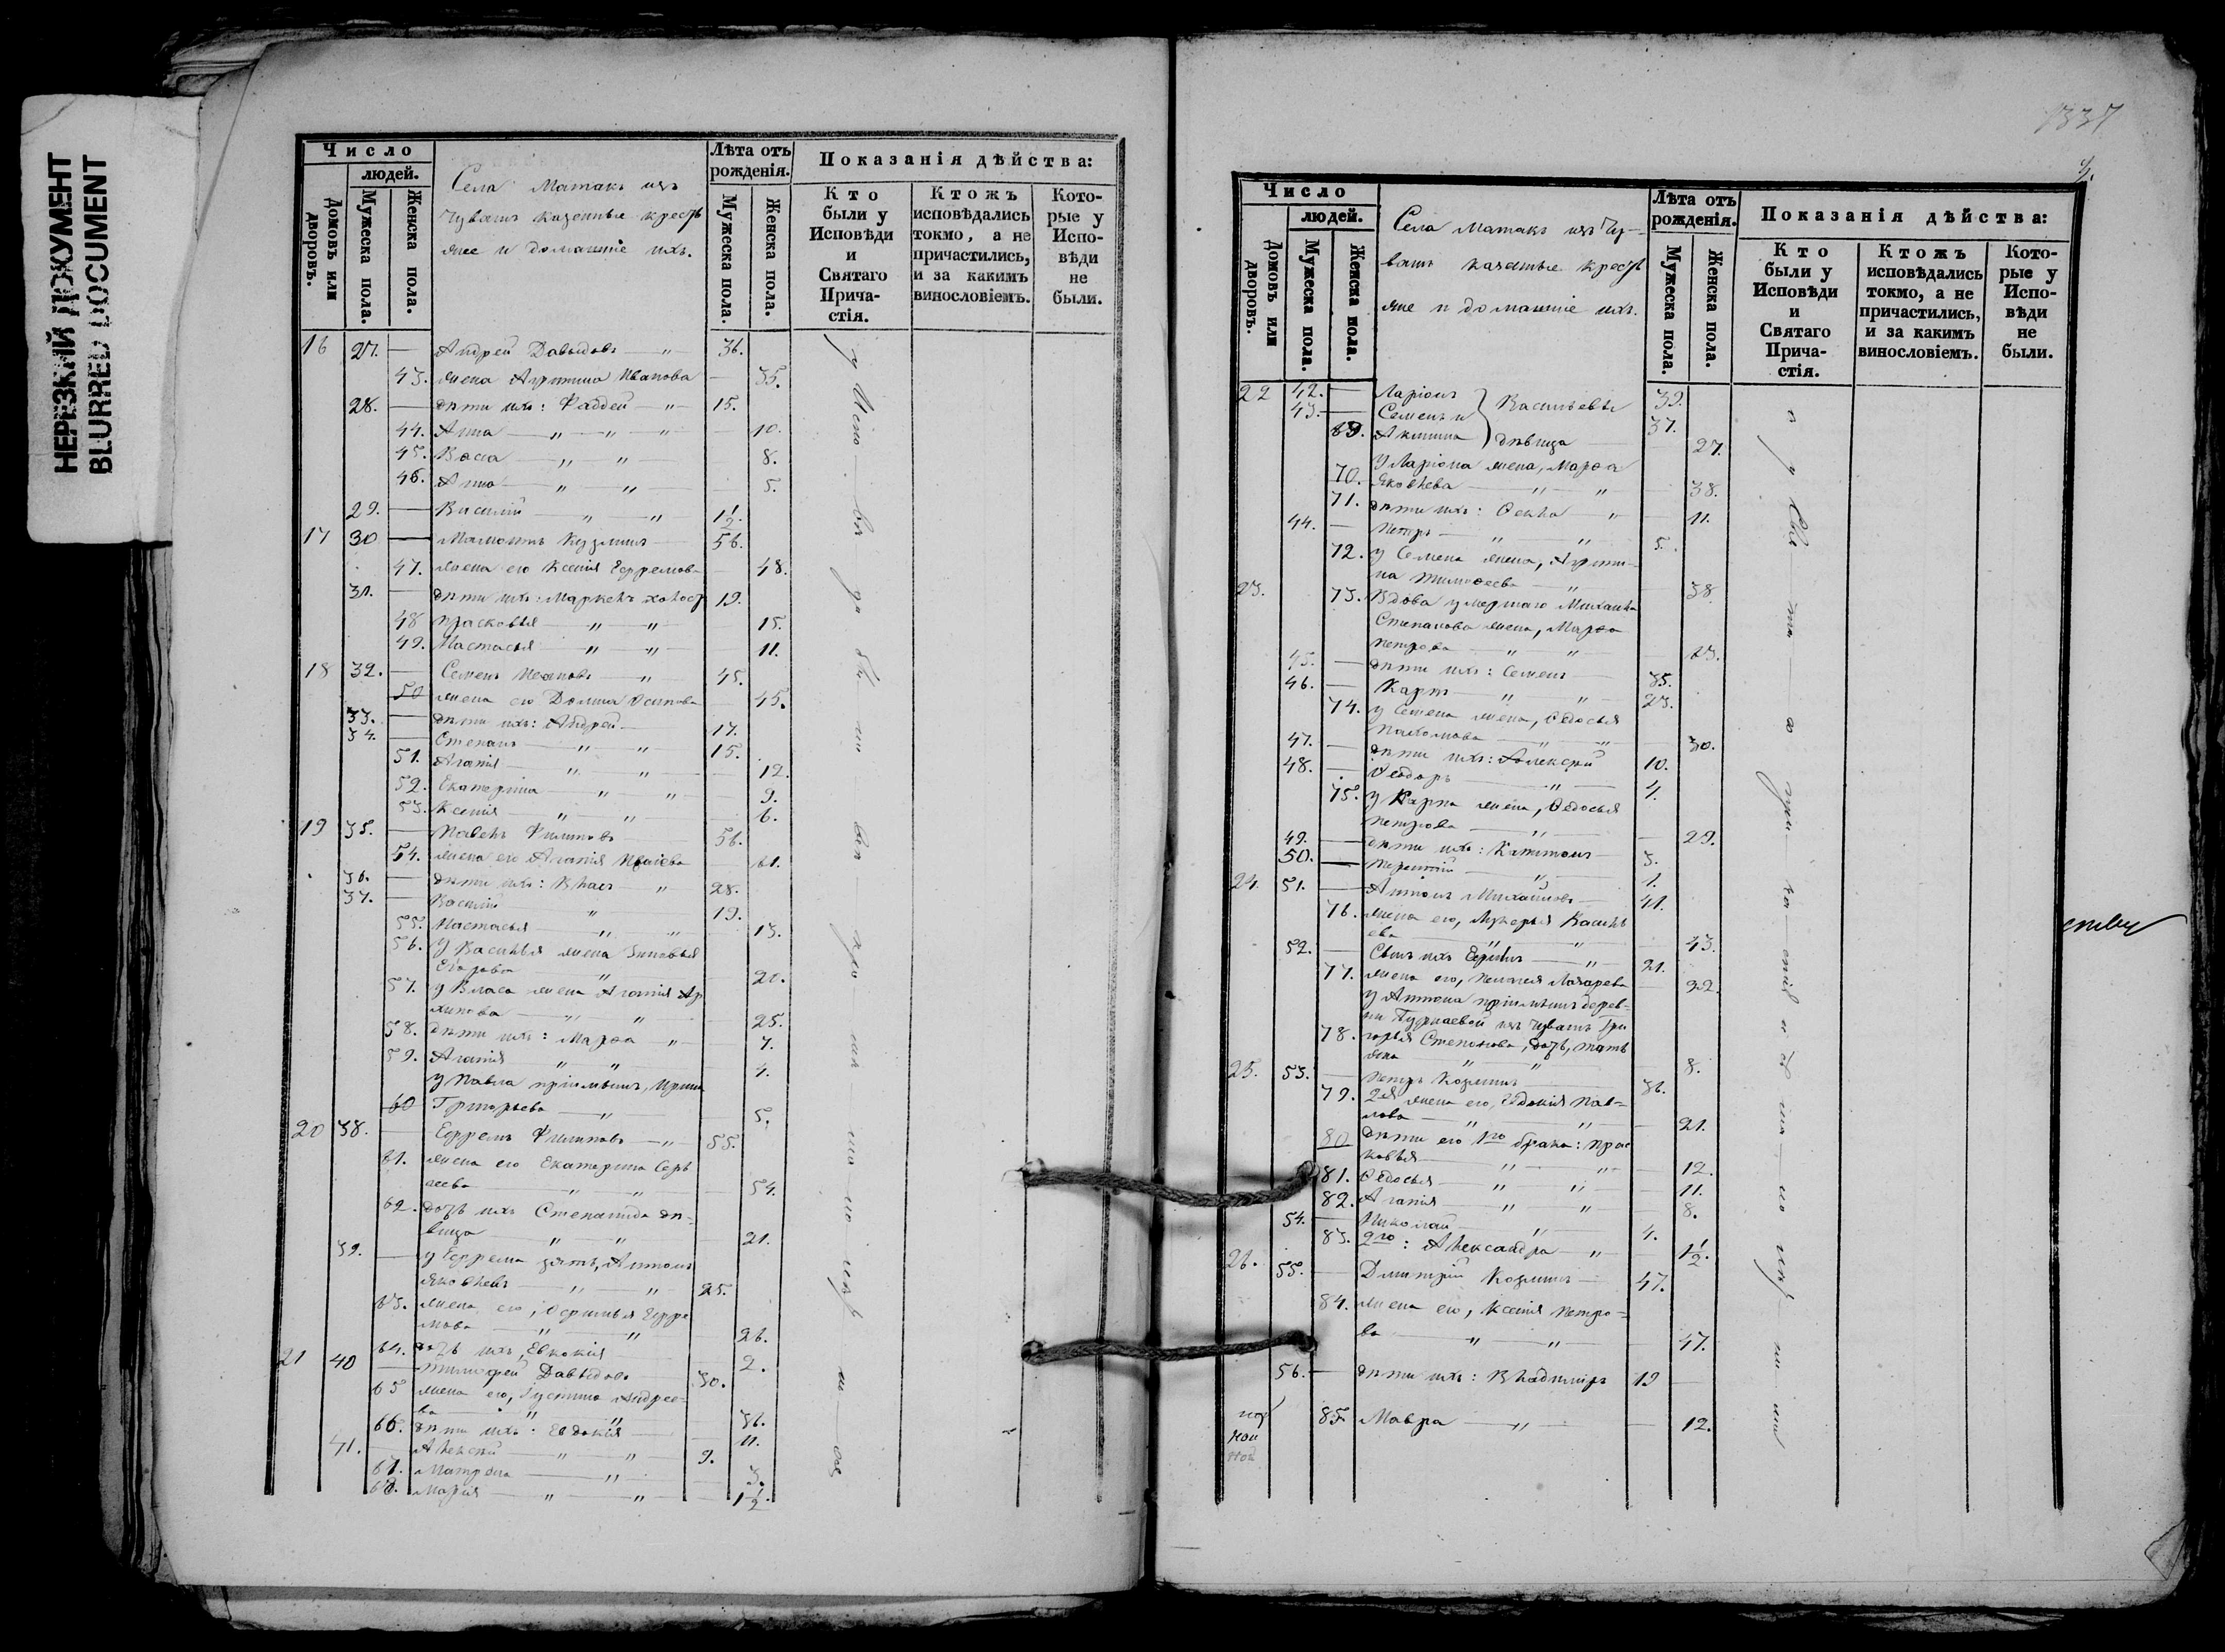 НЕРЕЗКИЙ ДОКУМЕНТ
BLURRED DOCUMENT
Число
людей.
Домовъ или дворовъ.
Мужеска пола.
Женска пола.
Села Матакъ изъ
Чувашъ казенные кресть
яне и домашніе ихъ.
Лѣта отъ рожденія.
Мужеска пола.
Женска пола.
Показанія дѣйства:
Кто были у Исповѣди и Святаго Прича-стія.
Ктожъ исповѣдались токмо, а не причастились, и за какимъ винословіемъ.
Кото-рые у Испо-вѣди не были.
16 27. — Андрей Давыдовъ — " — 36.
43. жена Агрипина Иванова — 35.
28. — дѣти ихъ: Фаддей — " — 15.
44. Анна — " — " — " — 10.
45. Васса — " — " — 8.
46. Анна — " — " 5.
29. — Василій — " — " 1½.
17 30 — Мамонтъ Кузминъ — 56.
47. жена его Ксенія Ефремова — 48.
31. — дѣти ихъ: Маркелъ холост 19.
48 Прасковья — " — " — 15.
49. Настасья — " — " — 11.
18 32. — Семенъ Ивановъ — " 45.
50 жена его Домна Осипова — 45.
33. — дѣти ихъ: Андрей — 17.
34. — Степанъ — " — " 15.
51. Агапія — " — " 12.
52. Екатерина — " — " 9.
53. Ксенія — " — " 6.
19 35. — Павелъ Филиповъ — 56.
54. жена его Агапія — 61.
36. — дѣти ихъ: Власъ — " 28.
37. — Василій — " 19.
55. Настасья — " — " 13.
56. у Василья жена Зиновья
Егорова — " 20.
57. у Власа жена Агапія Ар
хипова — " — " 25.
58. дѣти ихъ: Марѳа — " 7.
59. Агапія — " — " 4.
у Павла пріимышъ, Ирина
60 Григорьева — " 5.
20 38. — Ефремъ Филиповъ — " 55.
61. жена его Екатерина Серь
геева — " — " 54.
62. дочь ихъ Степанида дѣ-
вица — " — " 21.
39. — у Ефрема зять, Антонъ
Яковлевъ — " — " 25.
63. жена его, Ефре
мова — " — " 26.
64. дочь ихъ, Евдокія — 2.
21 40 — Тимофей Давыдовъ 30.
65 жена его, Устинья Андрее-
ва — " — " 36.
66. дѣти ихъ: Евдокія — 11.
41. — Алексѣй — " — " 9.
67. Матрена — " 3.
68. Марія — " — " 1½.
1337
Число
людей.
Домовъ или дворовъ.
Мужеска пола.
Женска пола.
Села Матакъ изъ Чу-
вашъ казенные кресть
яне и домашніе ихъ.
Лѣта отъ рожденія.
Мужеска пола.
Женска пола.
Показанія дѣйства:
Кто были у Исповѣди и Святаго Прича-стія.
Ктожъ исповѣдались токмо, а не причастились, и за какимъ винословіемъ.
Кото-рые у Испо-вѣди не были.
22 42. — Ларіонъ } Васильевы 39.
43. — Семенъ и 37.
69. Акилина } дѣвица — 27.
у Ларіона жена, Марѳа
70. Яковлева — " — " 38.
71. дѣти ихъ: Ѳекла — " 11.
44. — Петръ — " — " 5.
72. у Семена жена, Агрипи-
на Тимоѳеева — " 38
23. 73. Вдова умершаго Михаила
Степанова жена, Марѳа
Петрова — " — " 63.
45. — дѣти ихъ: Семенъ — 35.
46. — Карпъ — " — " 23.
74. у Семена жена, Ѳедосья
Пахомова — " — " 30.
47. — дѣти ихъ: Алексѣй 10.
48. — Ѳеодоръ — " 4.
75. у Карпа жена, Ѳедосья
Петрова — " 29.
49. — дѣти ихъ: Капитонъ — 3.
50. — Терентій — " 1.
24. 51. — Антонъ Михайловъ — 41.
76. жена его, Лукерья Василь
ева — " — " 43.
52. — Сынъ ихъ Ефимъ — " 21.
77. жена его, Пелагея Лазарева 22.
у Антона пріимышъ дерев-
ни изъ Чувашъ Гри
78. горья Степанова, дочь, Тать
яна — " — " 8.
25. 53. — Петръ Козминъ — 36.
79. 2ая жена его, Евдокія Пав-
лова — " — " 21.
80 дѣти его 1го брака: Прас
ковья — " — " 12.
81. Ѳедосья — " — " 11.
82. Агапія — " — " 8.
54. — Николай — " 4.
83. 2го: Александра — " 1½.
26. 55. — Дмитрій Козминъ — 47.
84. жена его, Ксенія Петро-
ва — " — " 47.
56. — дѣти ихъ: Владиміръ 19 —
85 Мавра — " — 12.